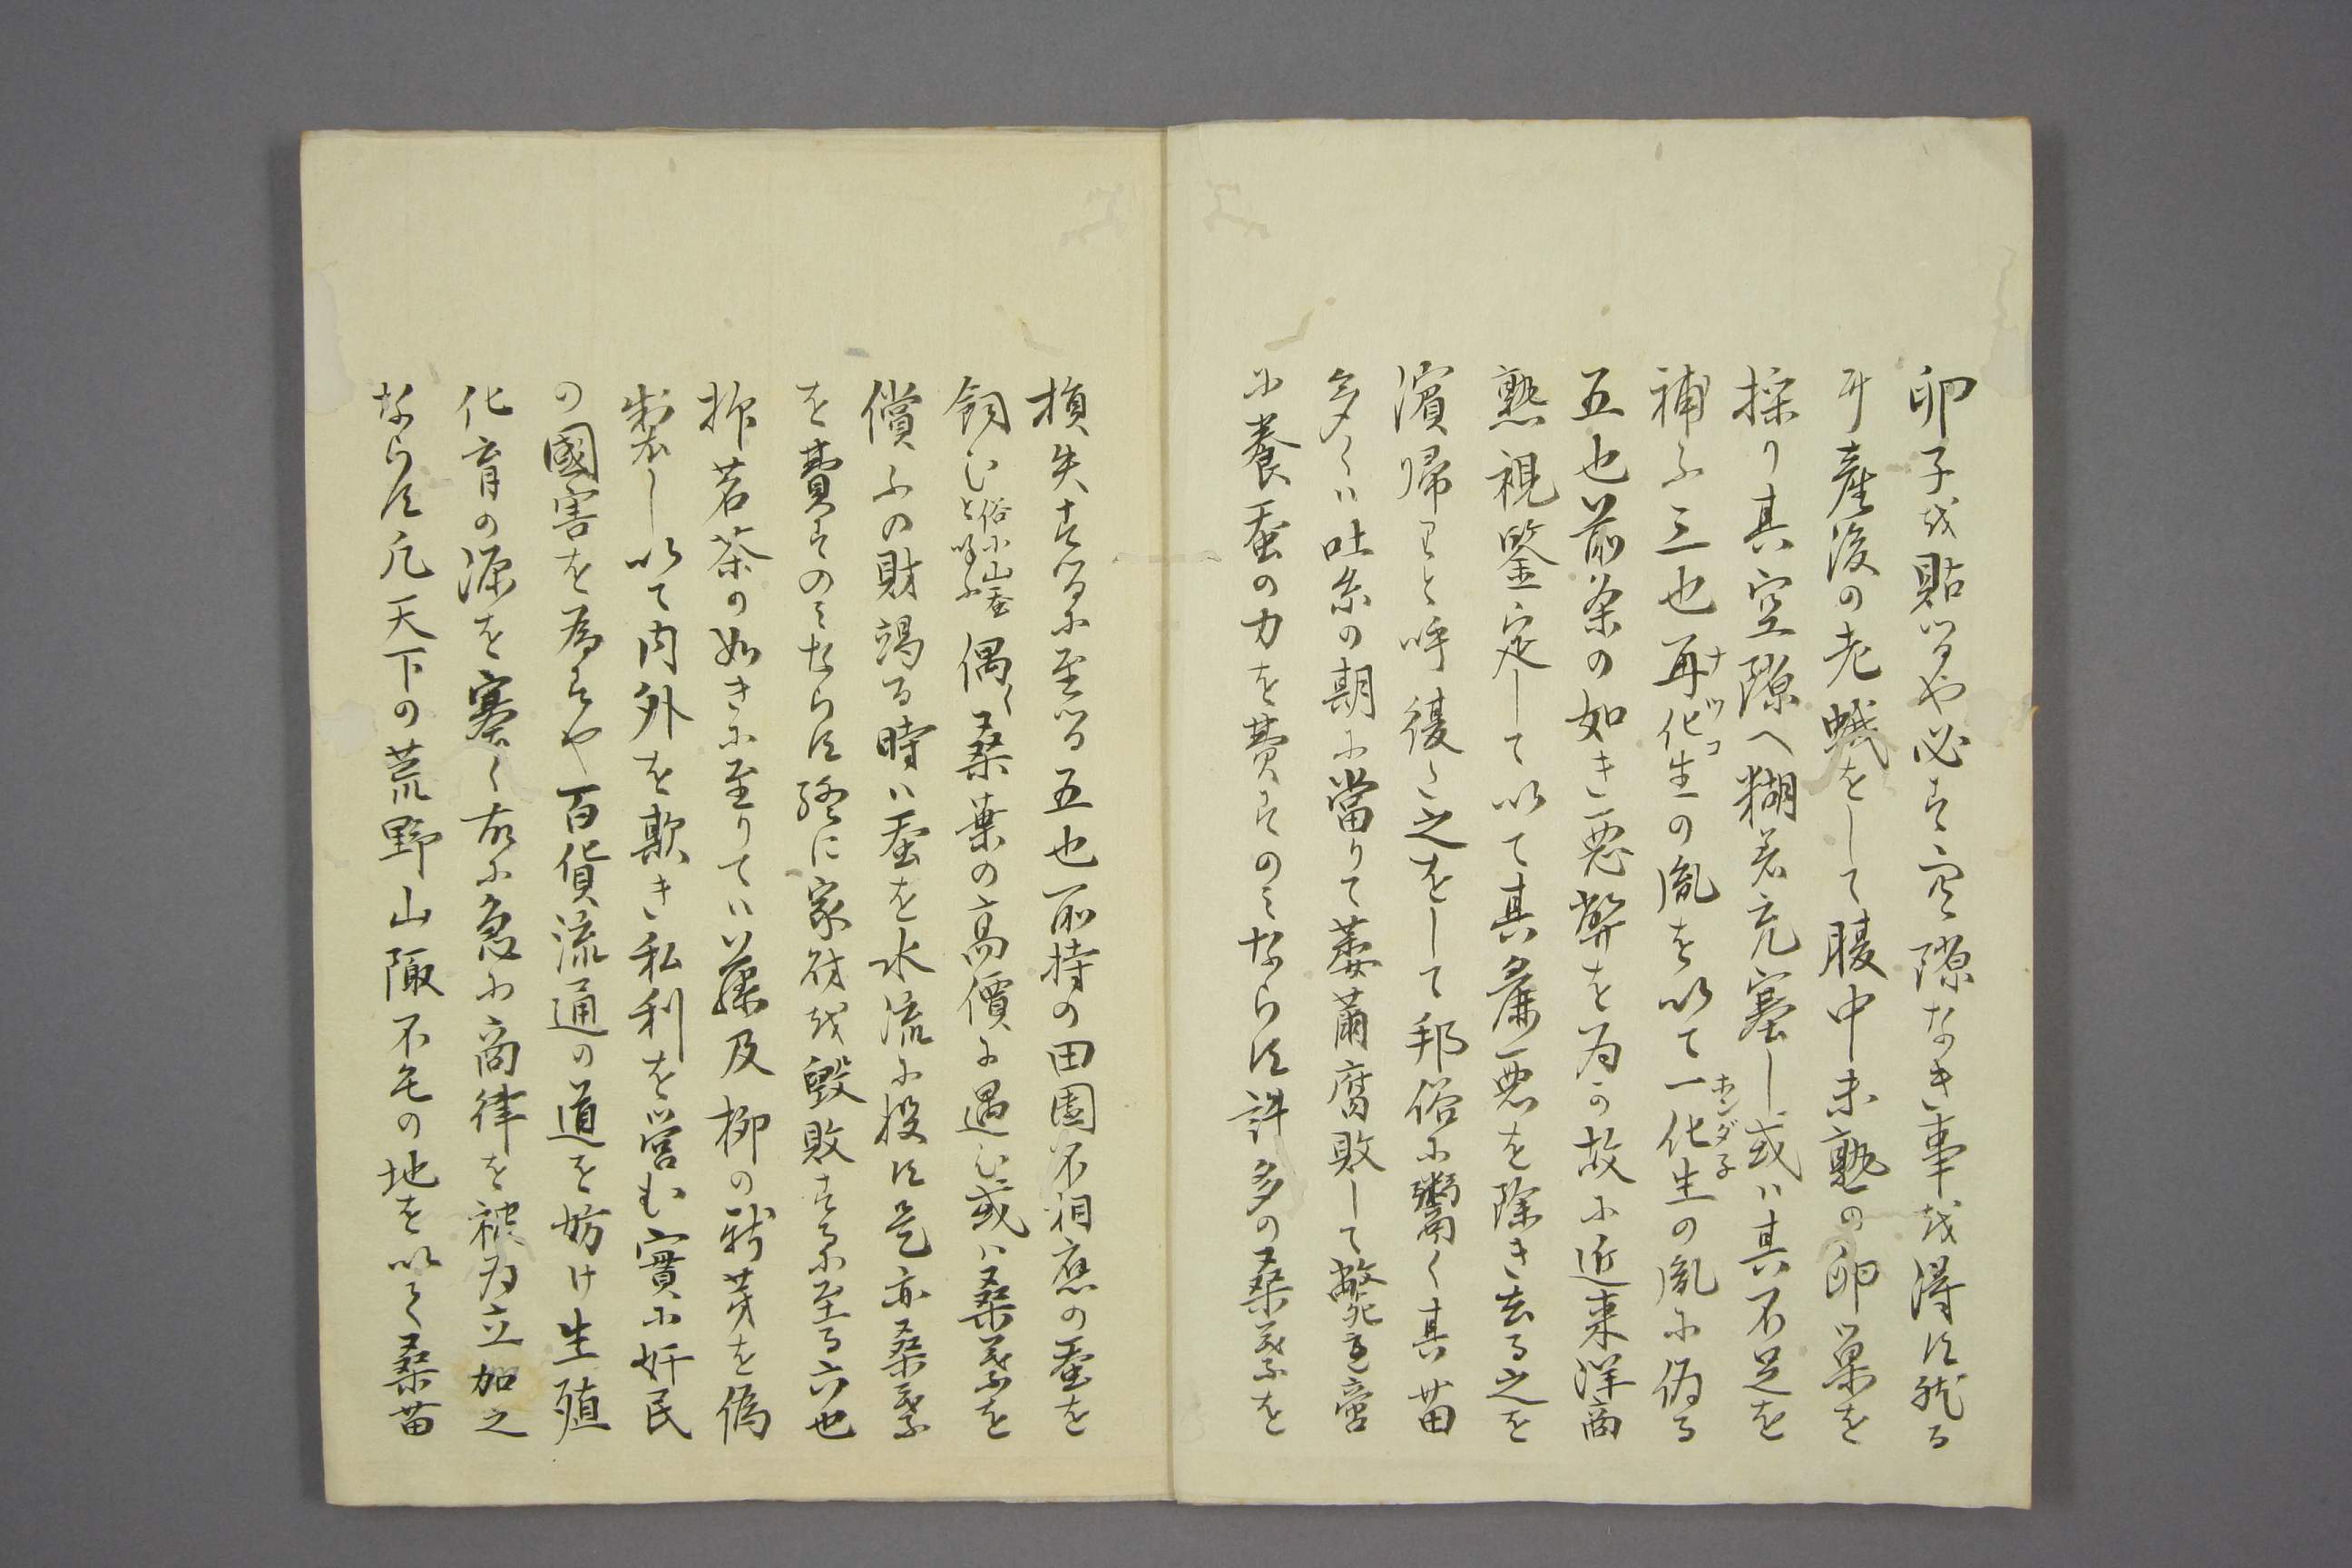 卵子を貼いるや必す空隙なき事を得す然る
耳産後の老蛾をして腹中未熟の卵巣を
採り其空隙へ糊着充塞し或は其不足を
補ふ三也再化生の胤を以て一化生の胤に偽る
ナツコ
ホンダ子
五也前条の如き悪弊を為か故に近来洋商
熟視鑒定して以て其麁悪を除き去る之を
濱帰りと呼復之をして邦俗に鬻く其苗
多くは吐糸の期に當りて萎薾腐敗して斃る啻
に養蚕の力を費すのみならす許多の桑葉を
損失するに至る五也所持の田園不相應の蚕を
飼ひ俗に山蚕と唱ふ偶桑葉の高價に遇ひ或は桑葉を
償ふの財竭る時は蚕を水流に投す是亦桑葉
を費すのみならす終に家財を毀敗するに至る六也
柞茗茶の如きに至りては藤及柳の新芽を偽
製し以て内外を欺き私利を営む實に奸民
の國害を為すや百貨流通の道を妨け生殖
化育の源を塞く故に急に商律を被為立加之
ならす凡天下の荒野山陬不毛の地を以て桑苗